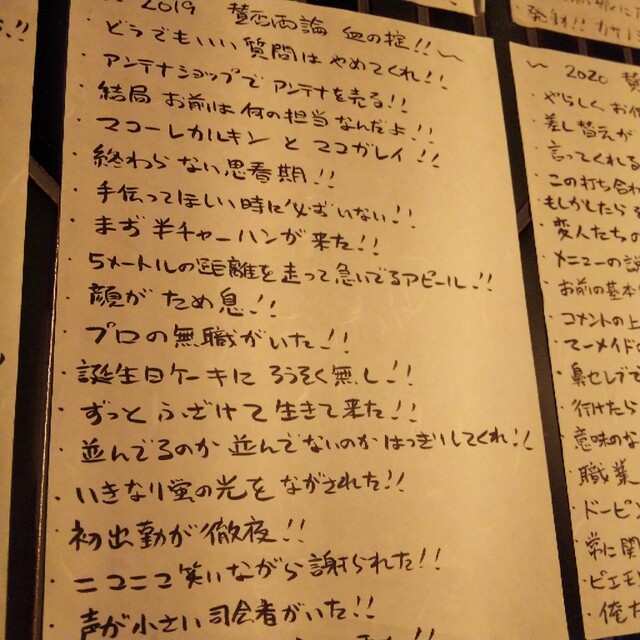 〜 2019 賛否両論 血の掟!! 〜
・どうでもいい質問はやめてくれ!!
・アンテナショップでアンテナを売る!!
・結局お前は何の担当なんだよ!!
・マコーレカルキンとマコガレイ!!
・終わらない思春期!!
・手伝ってほしい時に必ずいない!!
・まず半チャーハンが来た!!
・5メートルの距離を走って急いでるアピール!!
・顔がため息!!
・プロの無職がいた!!
・誕生日ケーキにろうそく無し!!
・ずっとふざけて生きて来た!!
・並んでるのか並んでないのかはっきりしてくれ!!
・いきなり蛍の光をながされた!!
・初出勤が徹夜!!
・ニコニコ笑いながら謝られた!!
・声が小さい司会者がいた!!
〜 2020 賛
・やらしく お
・差し替えが
・言ってくれる
・この打ち合わ
・もしかしたら
・変人たちの
・メニューの説
・お前の基本
・コメントの上
・マーメイド
・鼻セレブで
・行けたら
・意味のな
・職業
・ドーピン
・常に関
・ピエモ
・俺た